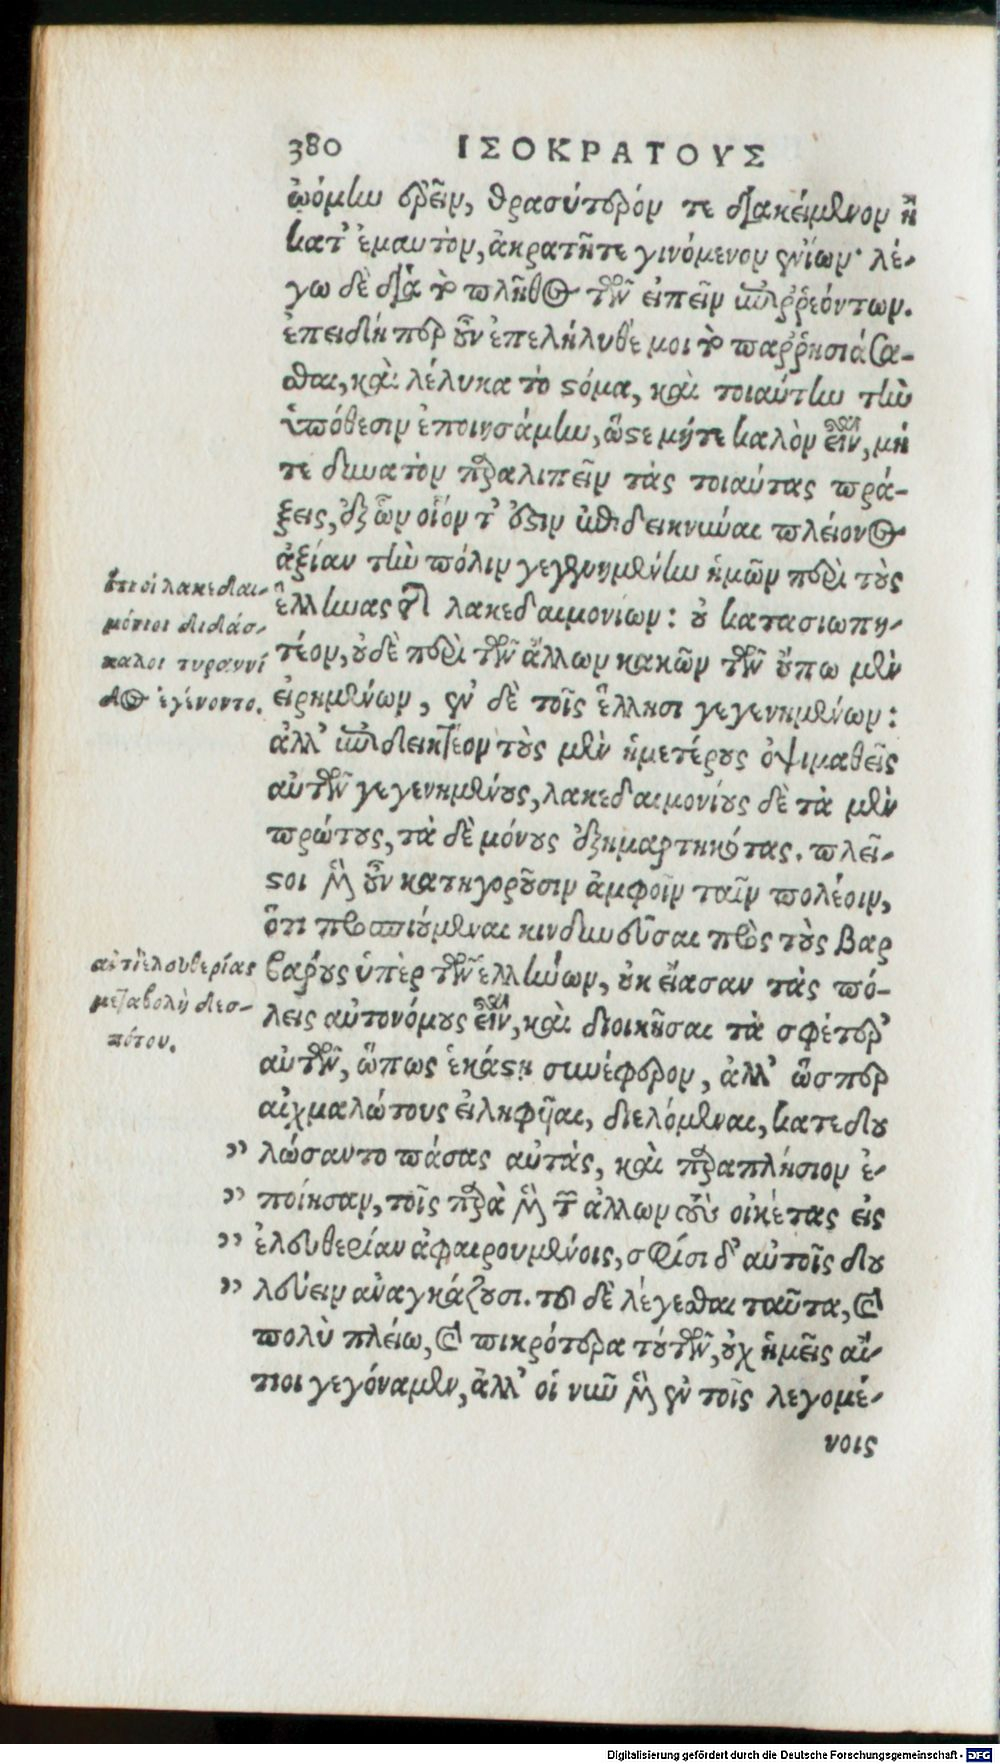 380 ΙΣΟΚΡΑΤΟΥΣ
ᾠόμην ἐρεῖν, θρασύτερόν τε διακείμενον ἢ
κατ' ἐμαυτὸν, ἀκρατῆ τε γινόμενον ἐνίων· λέ-
γω δὲ διὰ τὸ πλῆθος τῶν εἰπεῖν ἐπιῤῥεόντων.
ἐπειδήπερ οὖν ἐπελήλυθέ μοι τὸ παῤῥησιάσα-
σθαι, καὶ λέλυκα τὸ στόμα, καὶ τοιαύτην τὴν
ὑπόθεσιν ἐποιησάμην, ὥστε μήτε καλὸν εἶναι, μή
τε δυνατὸν παραλιπεῖν τὰς τοιαύτας πρά-
ξεις, ἐξ ὧν οἷόν τ' ἐστιν ἐπιδεικνύναι πλείονος
ἀξίαν τὴν πόλιν γεγενημένην ἡμῶν περὶ τοὺς
ἕλληνας τῆς λακεδαιμονίων: οὐ κατασιωπη-
τέον, οὐδὲ περὶ τῶν ἄλλων κακῶν τῶν οὔπω μὲν
εἰρημένων, ἐν δὲ τοῖς ἕλλησι γεγενημένων:
ἀλλ' ἐπιδεικτέον τοὺς μὲν ἡμετέρους ὀψιμαθεῖς
αὐτῶν γεγενημένους, λακεδαιμονίους δὲ τὰ μὲν
πρώτους, τὰ δὲ μόνους ἐξημαρτηκότας. πλεῖ-
στοι μὲν οὖν κατηγοροῦσιν ἀμφοῖν ταῖν πολέοιν,
ὅτι προσποιούμεναι κινδυνεῦσαι πρὸς τοὺς βαρ
βάρους ὑπὲρ τῶν ἑλλήνων, οὐκ εἴασαν τὰς πό-
λεις αὐτονόμους εἶναι, καὶ διοικῆσαι τὰ σφέτερ'
αὐτῶν, ὅπως ἑκάστῃ συνέφερον, ἀλλ' ὥσπερ
αἰχμαλώτους εἰληφυῖαι, διελόμεναι, κατεδου
" λώσαντο πάσας αὐτάς, καὶ παραπλήσιον ἐ-
" ποίησαν, τοῖς παρὰ μὲν τῶν ἄλλων τοὺς οἰκέτας εἰς
" ἐλευθερίαν ἀφαιρουμένοις, σφίσι δ' αὐτοῖς δου
" λεύειν ἀναγκάζουσι. τοῦ δὲ λέγεσθαι ταῦτα, καὶ
πολὺ πλείω, καὶ πικρότερα τούτων, οὐχ ἡμεῖς αἴ-
τιοι γεγόναμεν, ἀλλ' οἱ νῦν μὲν ἐν τοῖς λεγομέ-
νοις
ὅτι οἱ λακεδαι-
μόνιοι διδάσ-
καλοι τυραννί
δος ἐγένοντο.
αἰτὶ ἐλευθερίας
μεταβολὴ δεσ-
πότου.